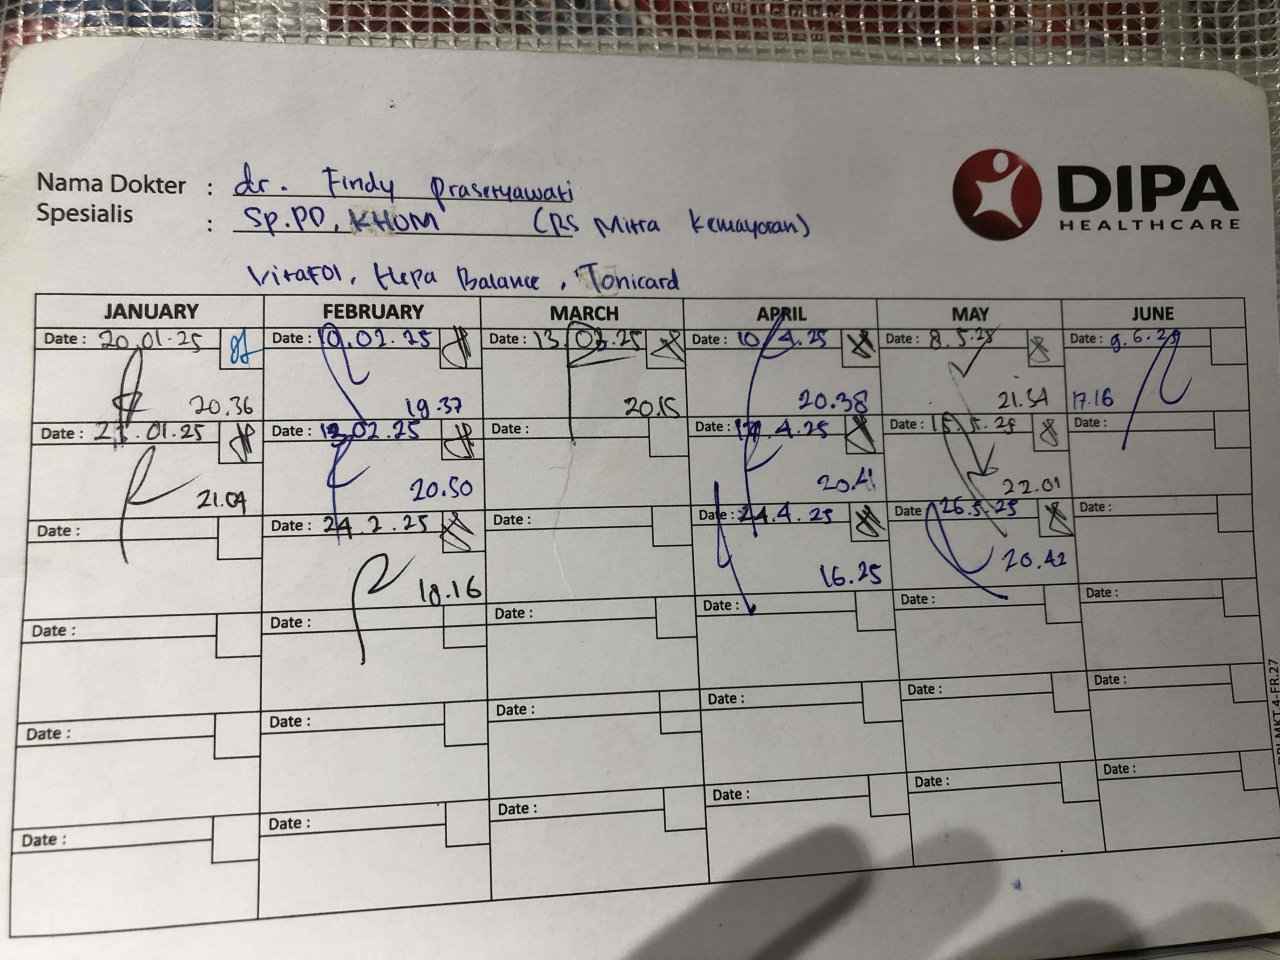 DIPA
HEALTHCARE
Nama Dokter : dr. Findy Prasetyawati
Spesialis : Sp.PD, KHOM (RS Mitra Kemayoran)
Vitafol, Hepa Balance, Tonicard
JANUARY FEBRUARY MARCH APRIL MAY JUNE
Date : 20.01.25 Date : 10.02.25 Date : 13.03.25 Date : 10.4.25 Date : 8.5.25 Date : 9.6.25
20.36 19.37 20.15 20.38 21.54 17.16
Date : 27.01.25 Date : 13.02.25 Date : Date : 17.4.25 Date : 15.5.25 Date :
21.09 20.50 20.41 22.01
Date : Date : 24.2.25 Date : Date : 24.4.25 Date 26.5.25 Date :
18.16 16.25 20.42
Date : Date : Date : Date : Date : Date :
Date : Date : Date : Date : Date : Date :
Date : Date : Date : Date : Date : Date :